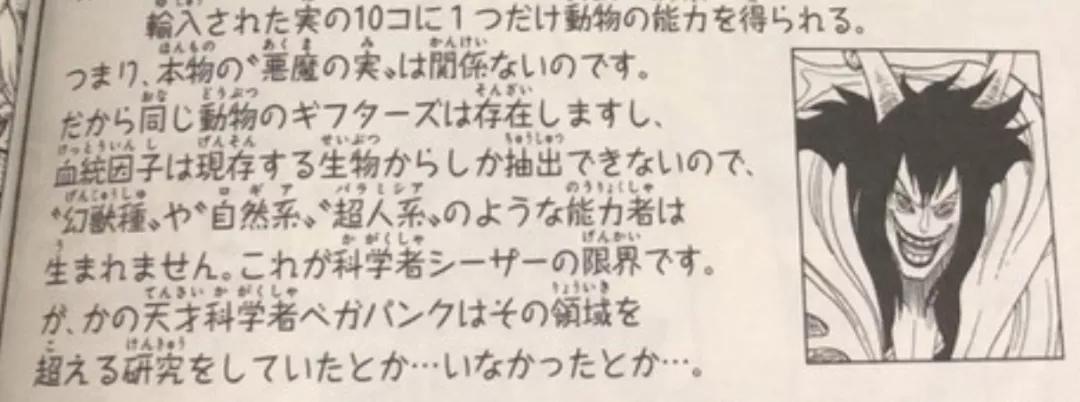 輸入された実の10コに1つだけ動物の能力を得られる。
つまり、本物の〝悪魔の実〟は関係ないのです。
だから同じ動物のギフターズは存在しますし、
血統因子は現存する生物からしか抽出できないので、
〝幻獣種〟や〝自然系〟〝超人系〟のような能力者は
生まれません。これが科学者シーザーの限界です。
が、かの天才科学者ベガパンクはその領域を
超える研究をしていたとか…いなかったとか…。